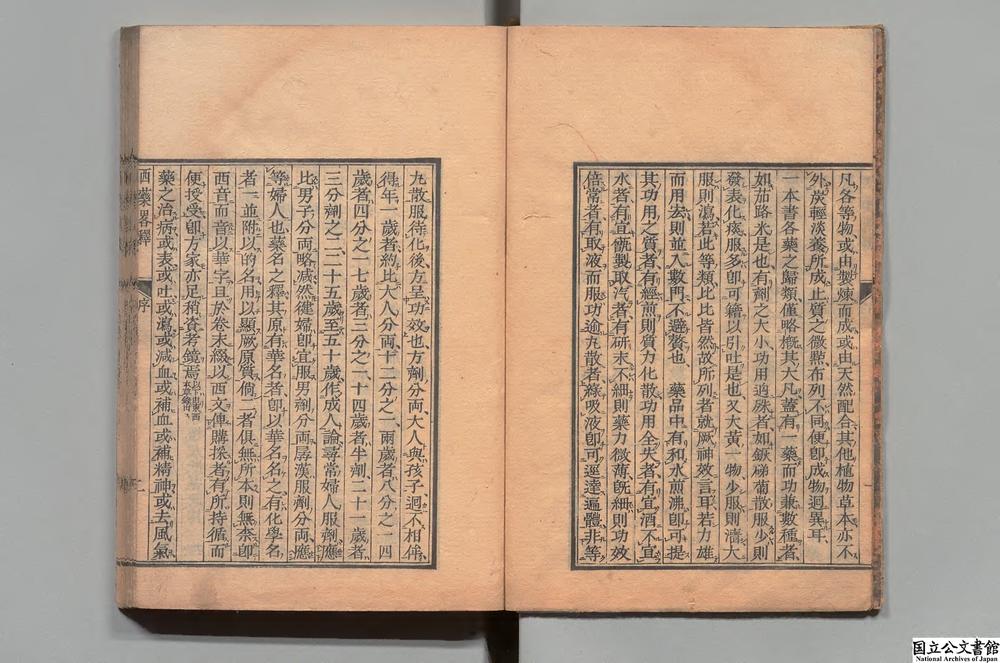 凡各等物或由製煉而成或由天然配合其他植物草本亦不
外炭輕淡養所成止質之微㸃布列不同便卽成物迥異耳
一本書各藥之歸類僅略槪其大凡蓋有一藥而功兼數種者
如茄路米是也有劑之大小功用逈殊者如銻磞葡散服少則
發表化痰服多卽可藉以引吐是也又大黃一物少服則濇大
服則瀉若此等類比比皆然故所列者就厥神效言耳若力雄
而用去則並入數門不避贅也 藥品中有和水煎沸卽可提
其功用之質者有經煎則質力化散功用全失者有宜酒不宜
水者有宜甑製取汽者有研末不細則藥力微薄旣細則功效
倍常者有取液而服功逾丸散者蓨吸液卽可逕達遍體非等
丸散服待化後方呈功效也方劑分兩大人與孩子迥不相侔
得年一歲者約比大人分兩十二分之一兩歲者八分之一四
歲者四分之一七歲者三分之一十四歲者半劑二十一歲者
三分劑之二二十五歲至五十歲作成人論尋常婦人服劑應
比男子分兩略減然健婦卽宜服男劑分兩孱漢服劑分兩應
等婦人也藥名之釋其原有華名者卽以華名名之有化學名
者一並附以的名用以顯厥原質倘二者俱無所本則無柰卽
西音而音以華字且於卷末綴以西文傳購採者有所持循而
便授受卽方家亦足稍資考鏡焉
藥之治病或表或吐或瀉或減血或補血或補精神或去風氣
西藥畧釋
序
二
国立公文書館
National Archives of Japan